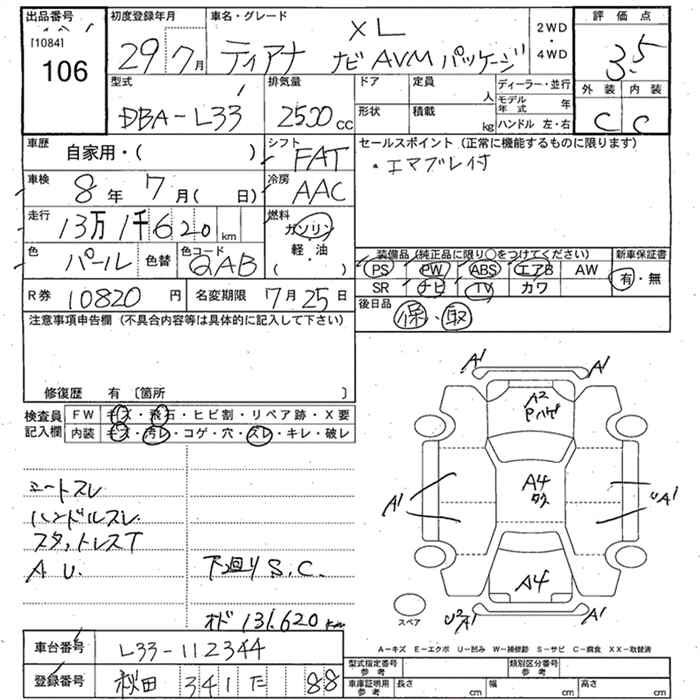 出品番号
[1084]
106
初度登録年月
29 7月
車名・グレード
XL
ティアナ ナビAVMパッケージ
2WD
・
4WD
評価点
3.5
外装 内装
C C
型式
DBA-L33
排気量
2500 cc
ドア 定員
人
形状 積載
kg
ディーラー・並行
モデル年式 年
ハンドル 左・右
車歴
自家用・( )
シフト
FAT
セールスポイント (正常に機能するものに限ります)
・エマブレ付
車検
8年 7月( 日)
冷房
AAC
走行
13万1千620km
燃料
ガソリン
軽・油
( )
色
パール
色替
色コード
QAB
装備品 (純正品に限り○をつけてください)
PS PW ABS エアB AW
SR ナビ TV カワ
新車保証書
有・無
R券 10820円
名変期限 7月25日
後日品
保・取
注意事項申告欄 (不具合内容等は具体的に記入して下さい)
修復歴 有 〔箇所 〕
検査員
記入欄
FW キズ・飛石・ヒビ割・リペア跡・X要
内装 キズ・汚レ・コゲ・穴・スレ・キレ・破レ
シートスレ
ハンドルスレ
スタットレスT
A U.
下廻りS.C.
オド 131.620km
A1 A1
A2
Pハゲ
A1
A4
A1
A4
U2A1 A1
スペア
A－キズ E－エクボ U－凹み W－補修跡 S－サビ C－腐食 XX－取替済
車台番号 L33-112344
登録番号 秋田 341 た 88
型式指定番号
参考
類別区分番号
参考
車庫証明用
参考
長さ cm 幅 cm 高さ cm